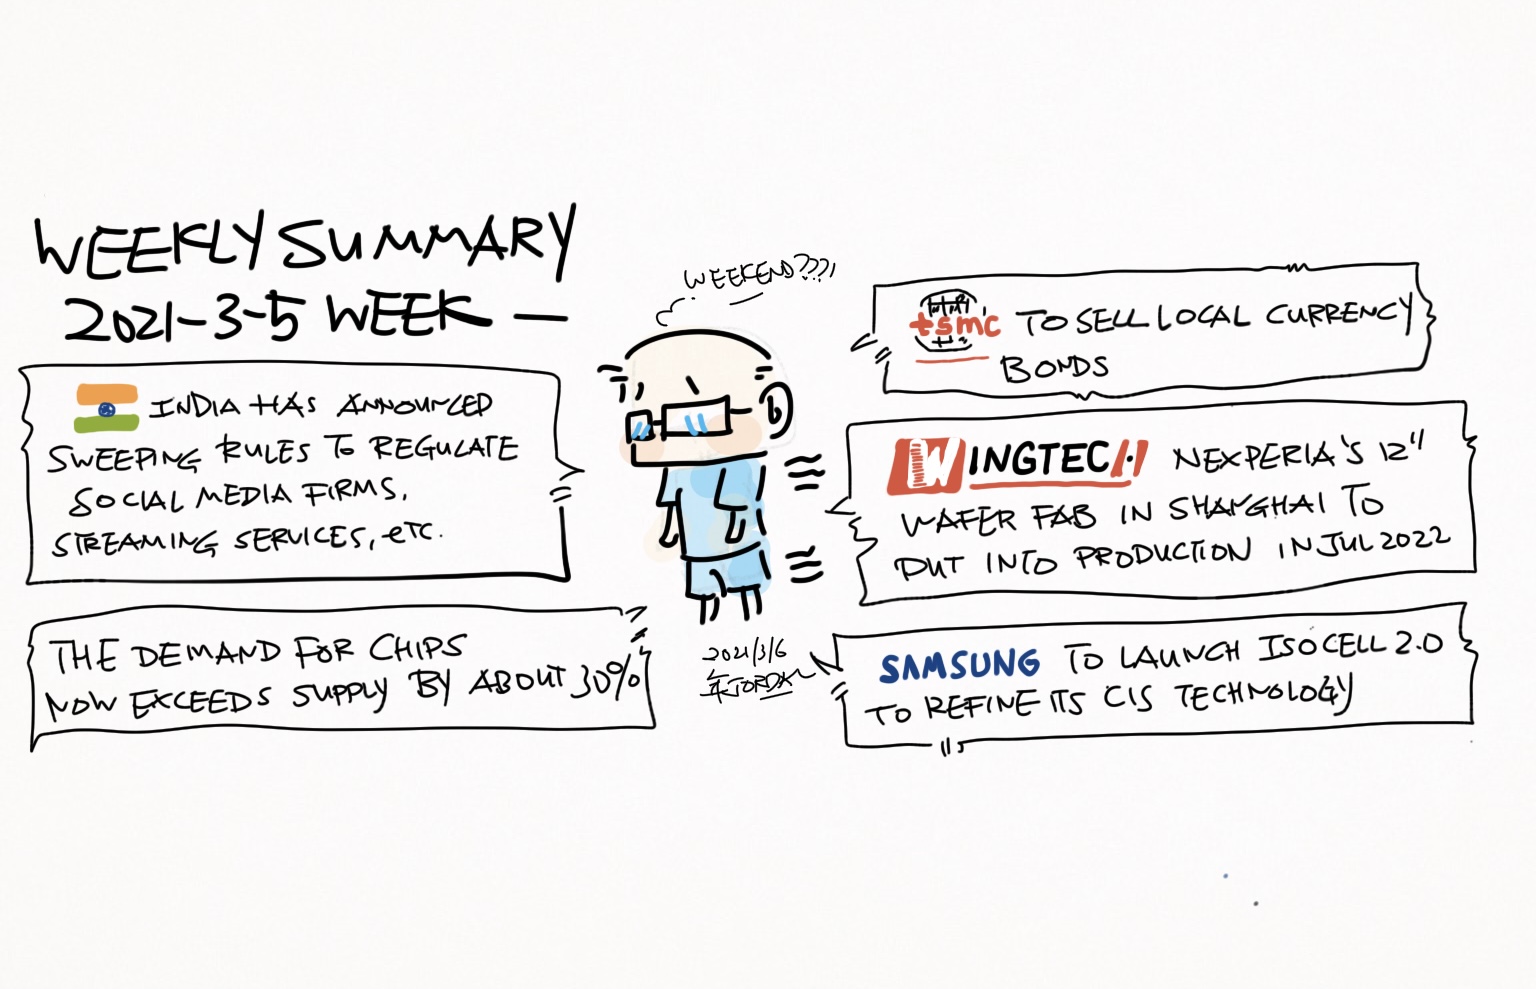 WEEKLY SUMMARY
2021-3-5 WEEK —
INDIA HAS ANNOUNCED
SWEEPING RULES TO REGULATE
SOCIAL MEDIA FIRMS,
STREAMING SERVICES, etc.
THE DEMAND FOR CHIPS
NOW EXCEEDS SUPPLY BY ABOUT 30%
WEEKEND????,
2021/3/6
JORDAN
tsmc TO SELL LOCAL CURRENCY
BONDS
WINGTECH NEXPERIA'S 12"
WAFER FAB IN SHANGHAI TO
PUT INTO PRODUCTION IN JUL 2022
SAMSUNG TO LAUNCH ISOCELL 2.0
TO REFINE ITS CIS TECHNOLOGY